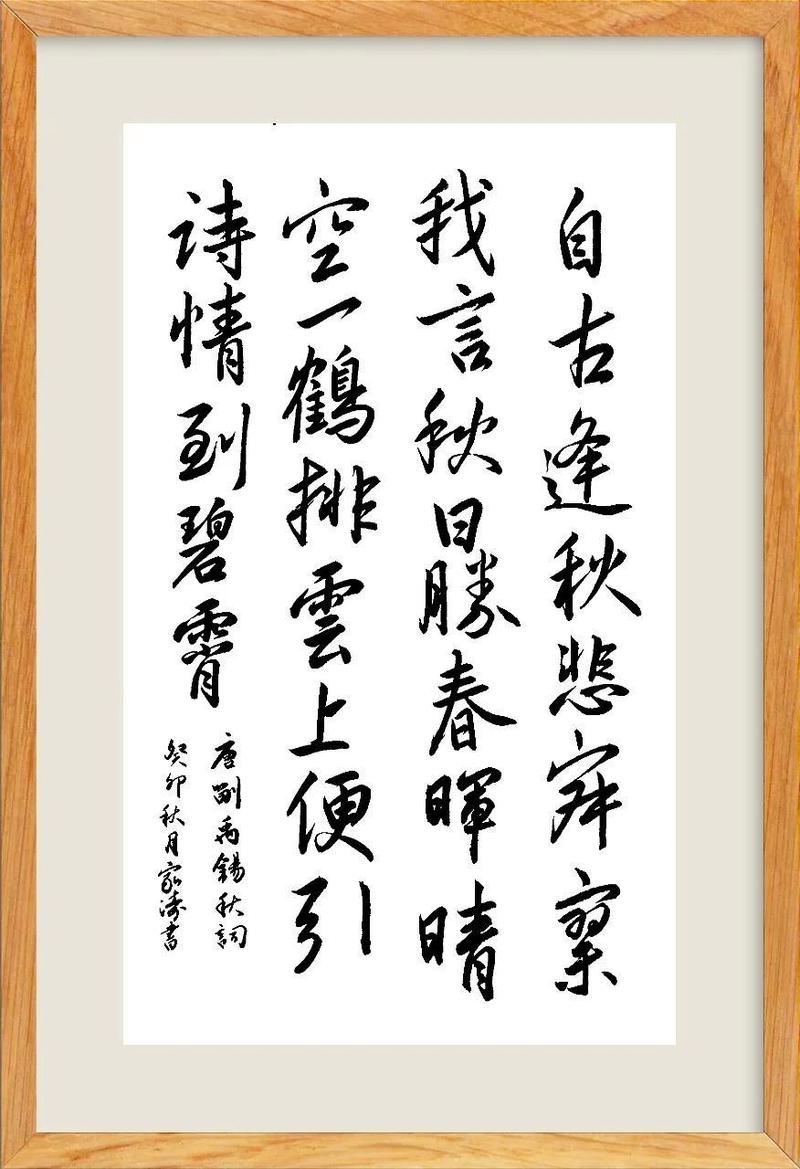 自古逢秋悲寂寥
我言秋日勝春暉晴
空一鶴排雲上便引
诗情到碧霄
唐劉禹錫秋詞
癸卯秋月家濤書